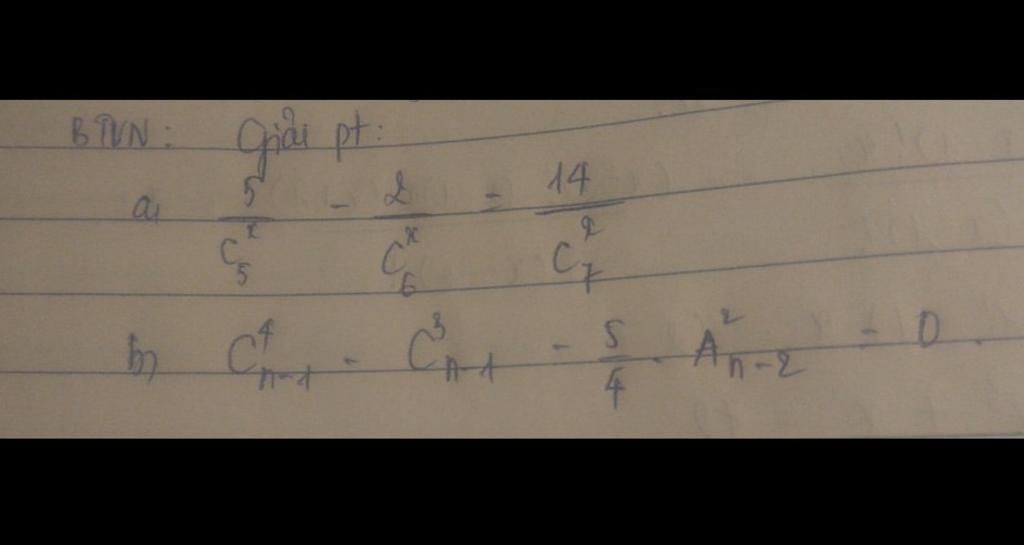 BTVN: Giải pt:
a, 5/C_5^x - 2/C_6^x = 14/C_7^x
b, C_{n-1}^4 - C_{n-1}^3 - 5/4 . A_{n-2}^2 = 0.